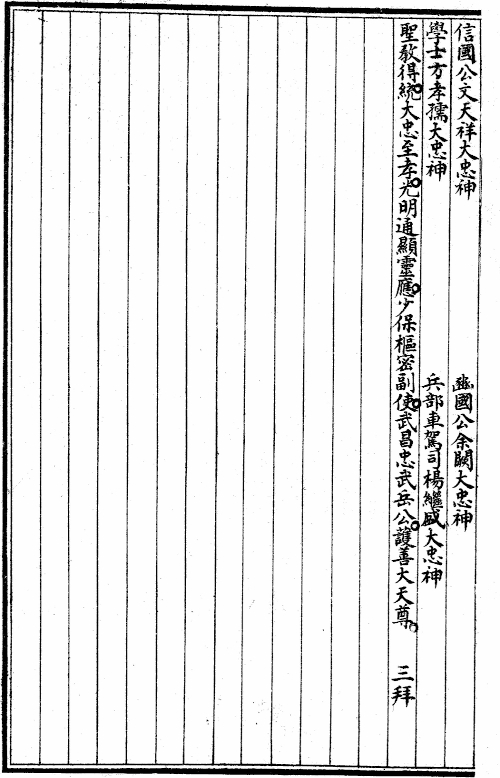 信國公文天祥大忠神　豳國公余闕大忠神
學士方孝孺大忠神　兵部車駕司楊繼盛大忠神
聖教得統。大忠至孝。光明通顯靈應。少保樞密副使。武昌忠武岳公。護善大天尊。　三拜